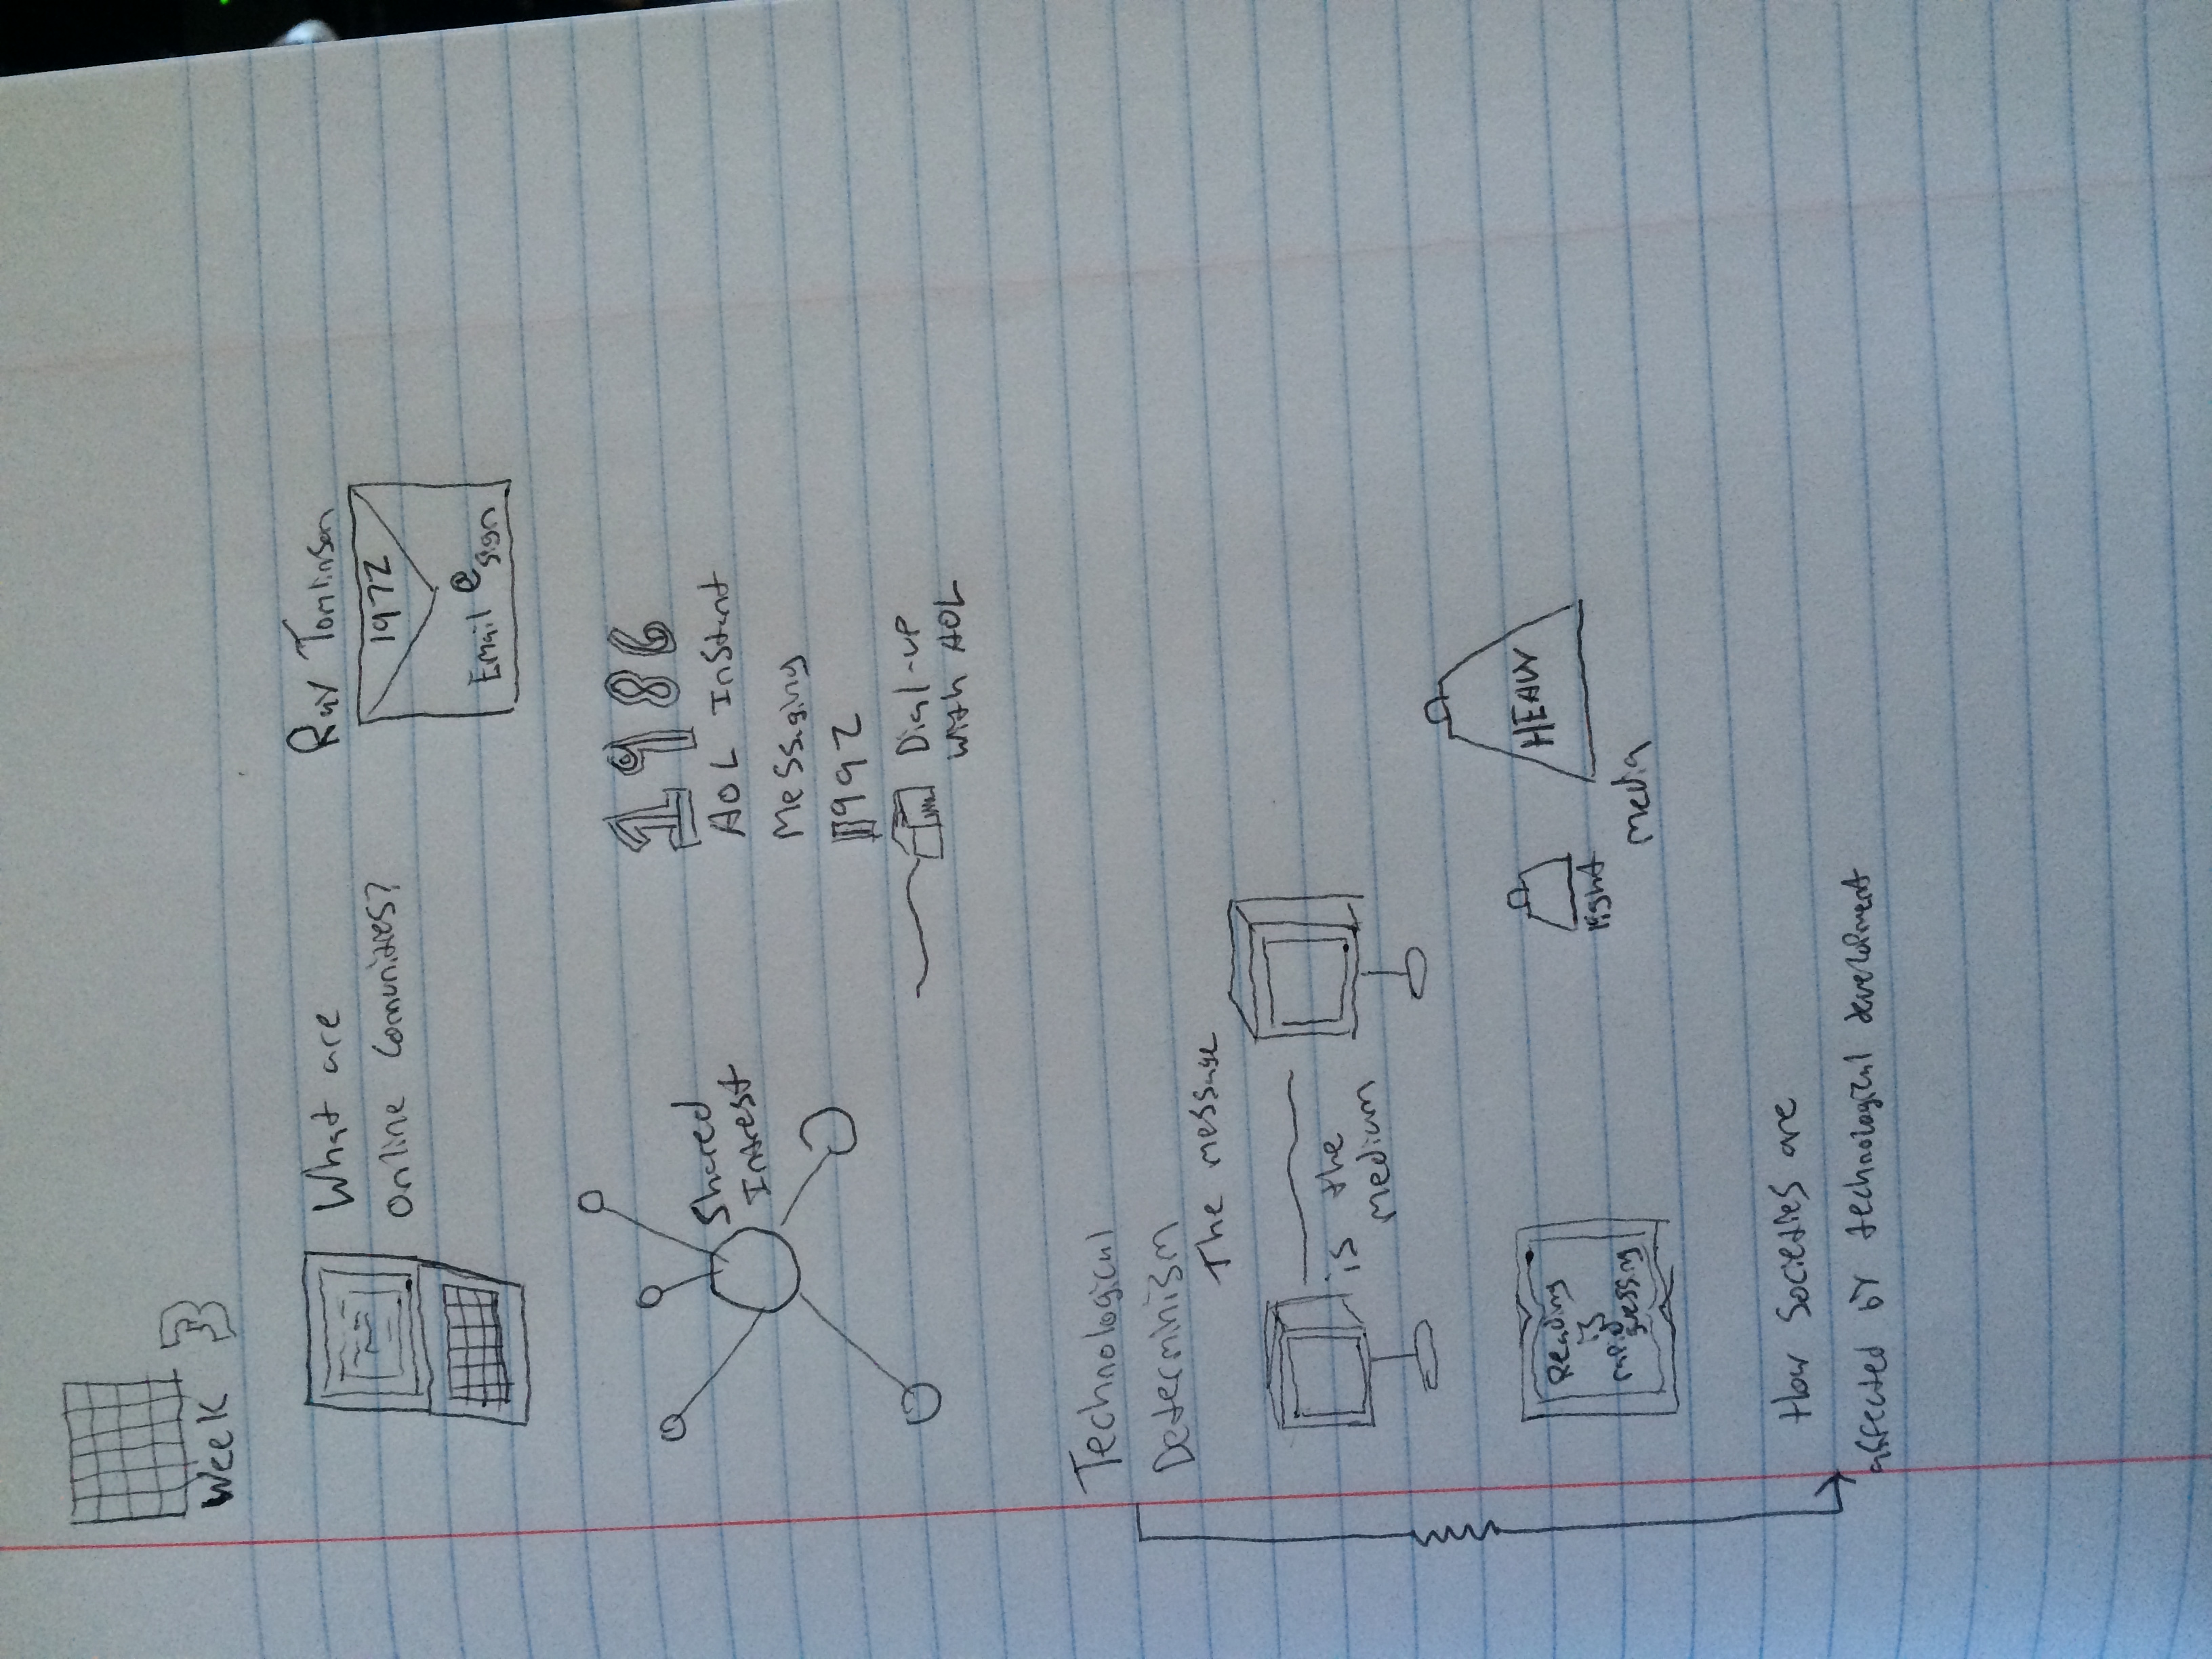 Week 3
What are
Online Comunities?
Ray Tomlinson
1972
Email @ sign
Shared
Intrest
1986
AOL Instant
Messaging
1992
Dial-up
with AOL
Technological
Determinism
The message
is the
medium
Reading
is
rapid
guessing
light
HEAVY
media
How Societies are
affected by technological development